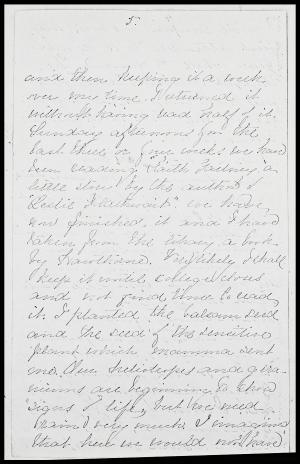 5.
and then keeping it a week
over my time I returned it
without having read half of it.
Sunday afternoons for the
last three or four weeks we have
been reading "Faith Gartney" a
little story by the author of
"Leslie Goldthwait" we have
now finished it and I have
taken from the library a book
by Hawthorne. Very likely I shall
keep it until college closes
and not find time to read
it. I planted the balsam seed
and the seed of the sensitive
plant which mamma sent
me. Our heliotropes and gera-
niums are beginning to show
signs of life, but we need
rain very much. I imagine
that here we would not have